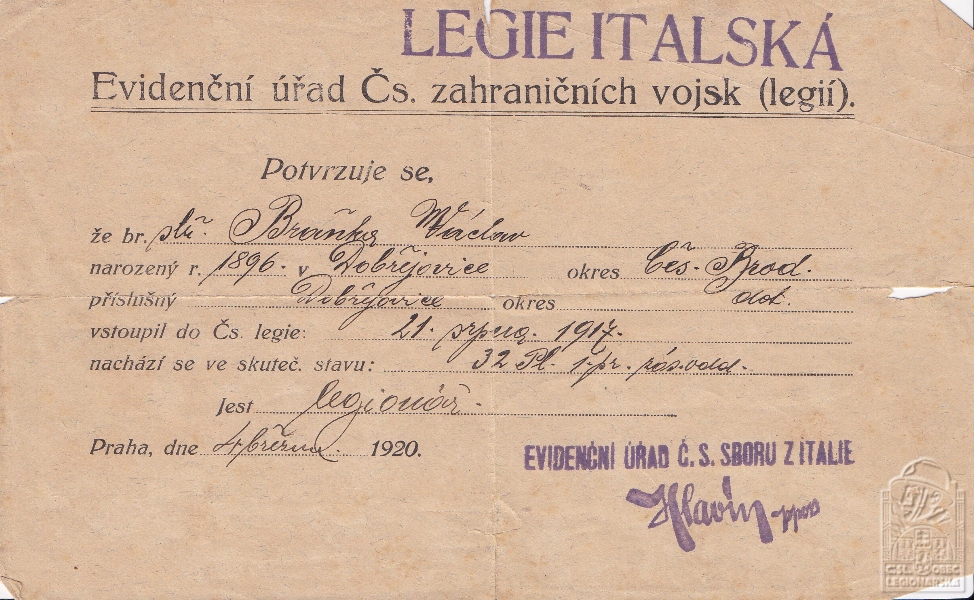 LEGIE ITALSKÁ
Evidenční úřad Čs. zahraničních vojsk (legií).
Potvrzuje se,
že br. stř. Braňka Václav
narozený r. 1896. v Dobřejovice okres Čes. Brod.
příslušný Dobřejovice okres dot.
vstoupil do Čs. legie: 21. srpna. 1917.
nachází se ve skuteč. stavu: 32 Pl. 1.pr. zás.odd.
Jest legionář.
Praha, dne 4 března. 1920.
EVIDENČNÍ ÚŘAD Č. S. SBORU Z ITALIE
ČSL. OBEC
LEGIONÁŘSKÁ